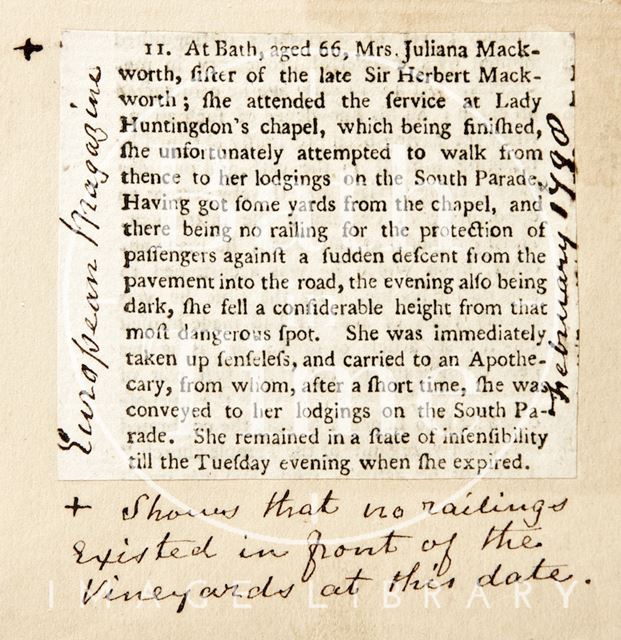 +
11. At Bath, aged 66, Mrs. Juliana Mack-
worth, ſiſter of the late Sir Herbert Mack-
worth; ſhe attended the ſervice at Lady
Huntingdon's chapel, which being finiſhed,
ſhe unfortunately attempted to walk from
thence to her lodgings on the South Parade.
Having got ſome yards from the chapel, and
there being no railing for the protection of
paſſengers againſt a ſudden deſcent from the
pavement into the road, the evening alſo being
dark, ſhe fell a conſiderable height from that
moſt dangerous ſpot. She was immediately
taken up ſenſeleſs, and carried to an Apothe-
cary, from whom, after a ſhort time, ſhe was
conveyed to her lodgings on the South Pa-
rade. She remained in a ſtate of inſenſibility
till the Tueſday evening when ſhe expired.
European Magazine
February
+ Shows that no railings
existed in front of the
Vineyards at this date.
IMAGE LIBRARY